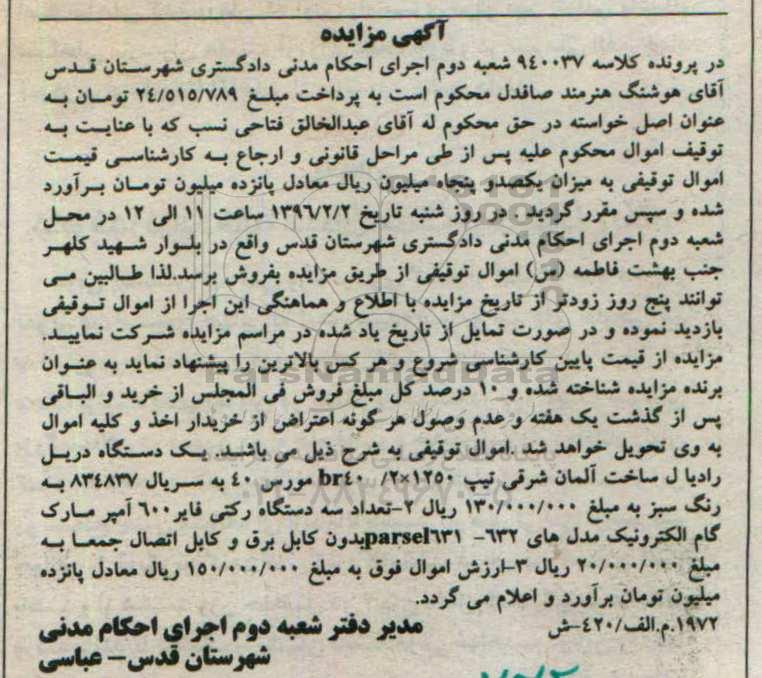 آگهی مزایده
در پرونده کلاسه ۹۴۰۰۳۷ شعبه دوم اجرای احکام مدنی دادگستری شهرستان قدس
آقای هوشنگ هنرمند صافدل محکوم است به پرداخت مبلغ ۲۴/۵۱۵/۷۸۹ تومان به
عنوان اصل خواسته در حق محکوم له آقای عبدالخالق فتاحی نسب که با عنایت به
توقیف اموال محکوم علیه پس از طی مراحل قانونی و ارجاع به کارشناسی قیمت
اموال توقیفی به میزان یکصدو پنجاه میلیون ریال معادل پانزده میلیون تومان برآورد
شده و سپس مقرر گردید . در روز شنبه تاریخ ۱۳۹۶/۲/۲ ساعت ۱۱ الی ۱۲ در محل
شعبه دوم اجرای احکام مدنی دادگستری شهرستان قدس واقع در بلوار شهید کلهر
جنب بهشت فاطمه (س) اموال توقیفی از طریق مزایده بفروش برسد.لذا طالبین می
توانند پنج روز زودتر از تاریخ مزایده با اطلاع و هماهنگی این اجرا از اموال توقیفی
بازدید نموده و در صورت تمایل از تاریخ یاد شده در مراسم مزایده شرکت نمایید.
مزایده از قیمت پایین کارشناسی شروع و هر کس بالاترین را پیشنهاد نماید به عنوان
برنده مزایده شناخته شده و ۱۰ درصد کل مبلغ فروش فی المجلس از خرید و الباقی
پس از گذشت یک هفته و عدم وصول هر گونه اعتراض از خریدار اخذ و کلیه اموال
به وی تحویل خواهد شد .اموال توقیفی به شرح ذیل می باشد. یک دستگاه دریل
رادیا ل ساخت آلمان شرقی تیپ br۴۰ /۲×۱۲۵۰ مورس ۴۰ به سریال ۸۳۴۸۳۷ به
رنگ سبز به مبلغ ۱۳۰/۰۰۰/۰۰۰ ریال ۲-تعداد سه دستگاه رکتی فایر۶۰۰ آمپر مارک
گام الکترونیک مدل های ۶۳۲- parsel۶۳۱بدون کابل برق و کابل اتصال جمعا به
مبلغ ۲۰/۰۰۰/۰۰۰ ریال ۳-ارزش اموال فوق به مبلغ ۱۵۰/۰۰۰/۰۰۰ ریال معادل پانزده
میلیون تومان برآورد و اعلام می گردد.
۱۹۷۲.م.الف/۴۲۰-ش
مدیر دفتر شعبه دوم اجرای احکام مدنی
شهرستان قدس- عباسی
ParsNamadData
۰۲۱-۸۸۳۴۹۶۷۰-۵